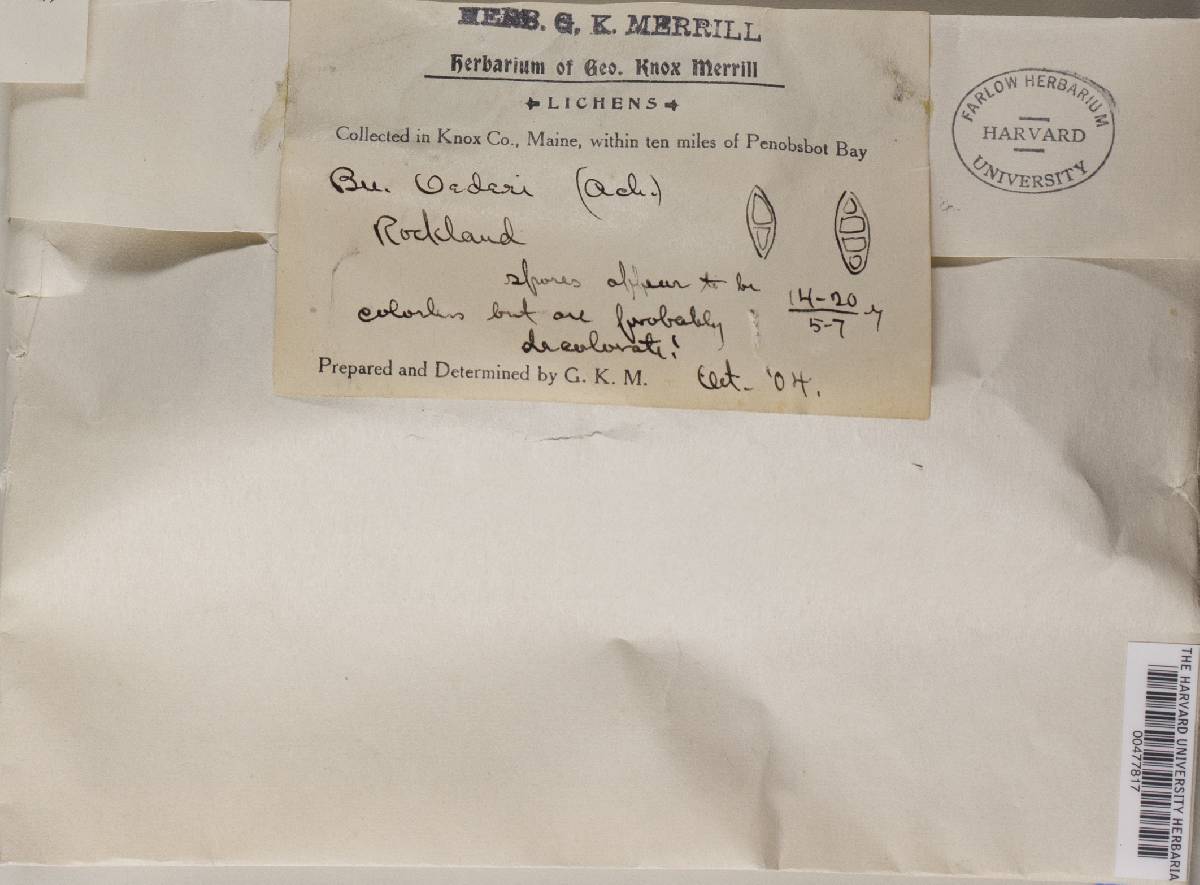 HERB. G. K. MERRILL
Herbarium of Geo. Knox Merrill
LICHENS
Collected in Knox Co., Maine, within ten miles of Penobsbot Bay
Bu. Oederi (Ach.)
Rockland
spores appear to be
colorless but are probably
decolorate!
14-20
5-7
Prepared and Determined by G. K. M. Oct. '04.
FARLOW HERBARIUM
HARVARD
UNIVERSITY
THE HARVARD UNIVERSITY HERBARIA
00477817